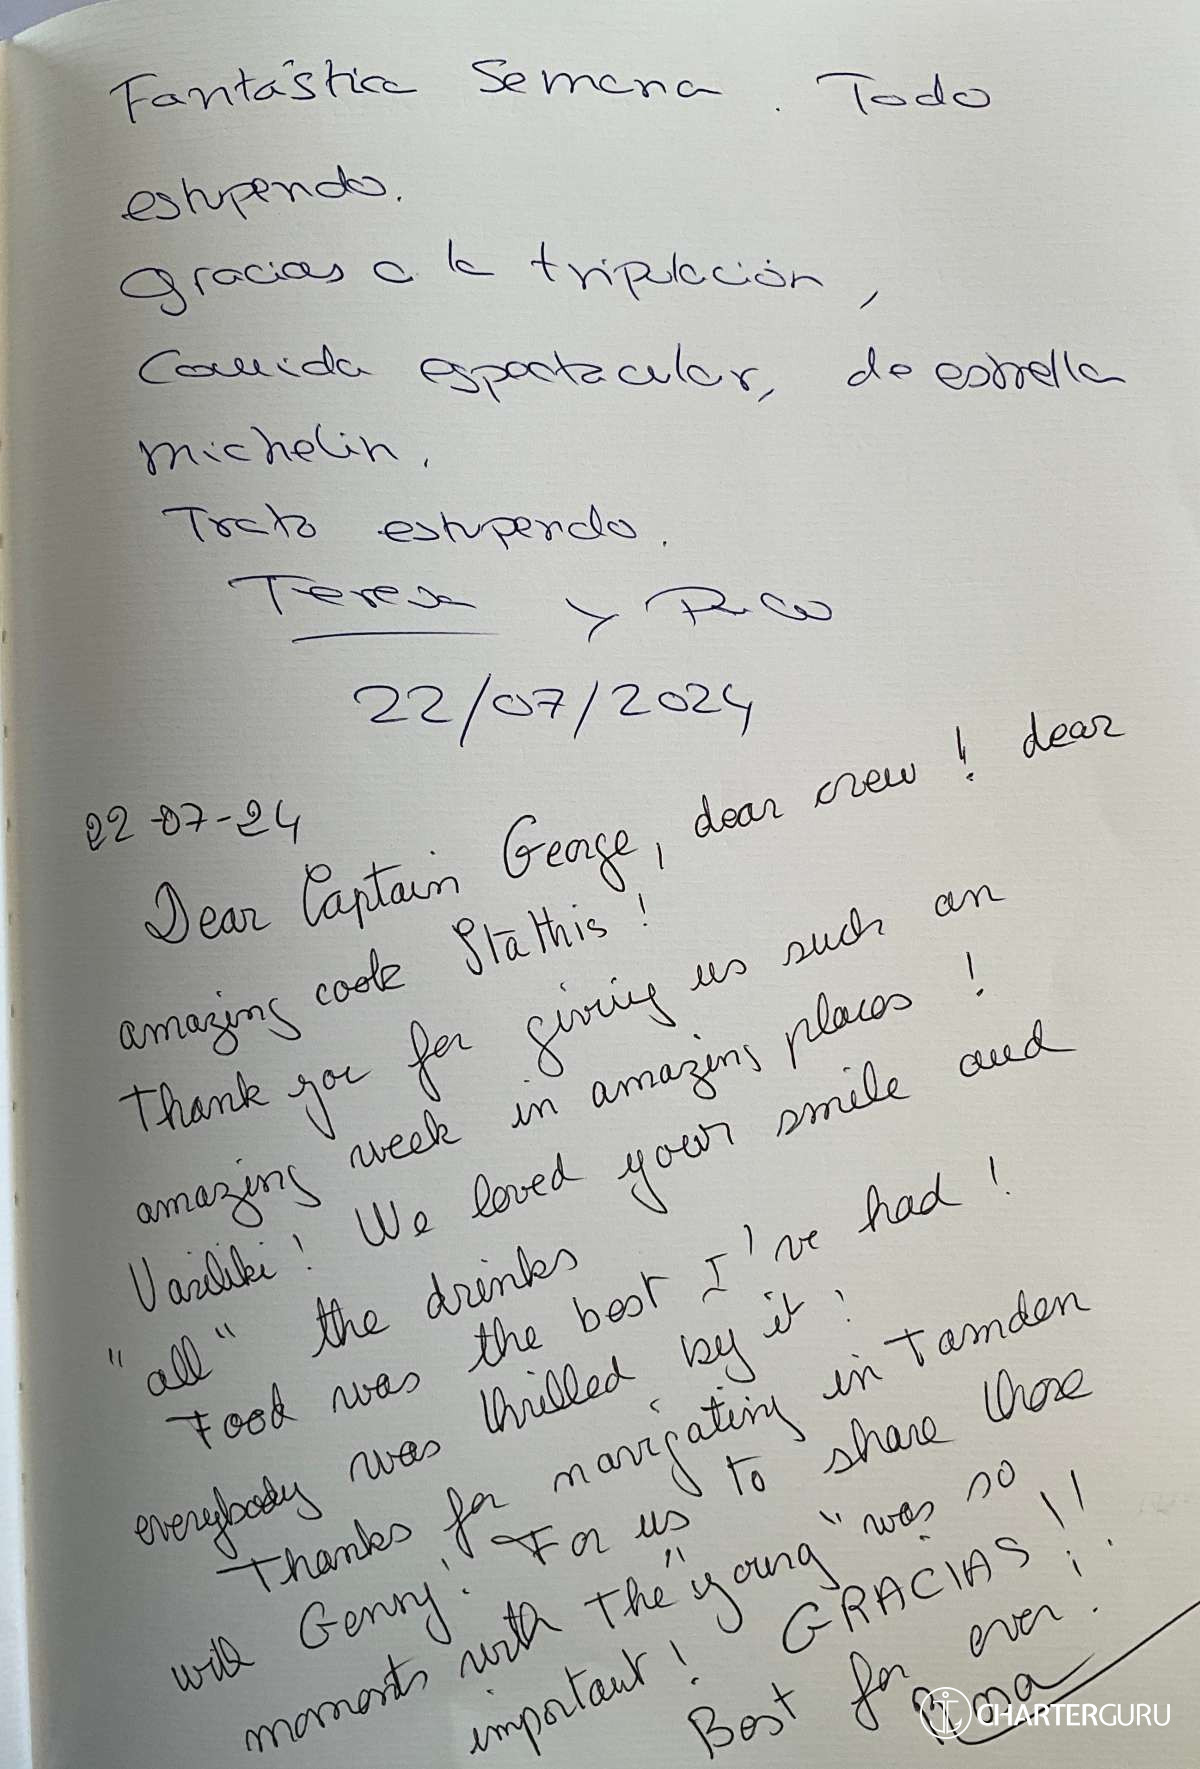 Fantástica Semana. Todo
estupendo.
Gracias a la tripulación,
Comida espectacular, de estrella
michelin.
Trato estupendo.
Teresa y
22/07/2024
22-07-24
Dear Captain George, dear crew! dear
amazing cook Stathis!
Thank you for giving us such an
amazing week in amazing places!
Vasiliki! We loved your smile and
"all" the drinks
Food was the best I've had!
everybody was thrilled by it!
Thanks for navigating in Tamden
with Genny! For us to share those
moments with the "young" was so
important! GRACIAS!!
Best for ever!
CHARTERGURU